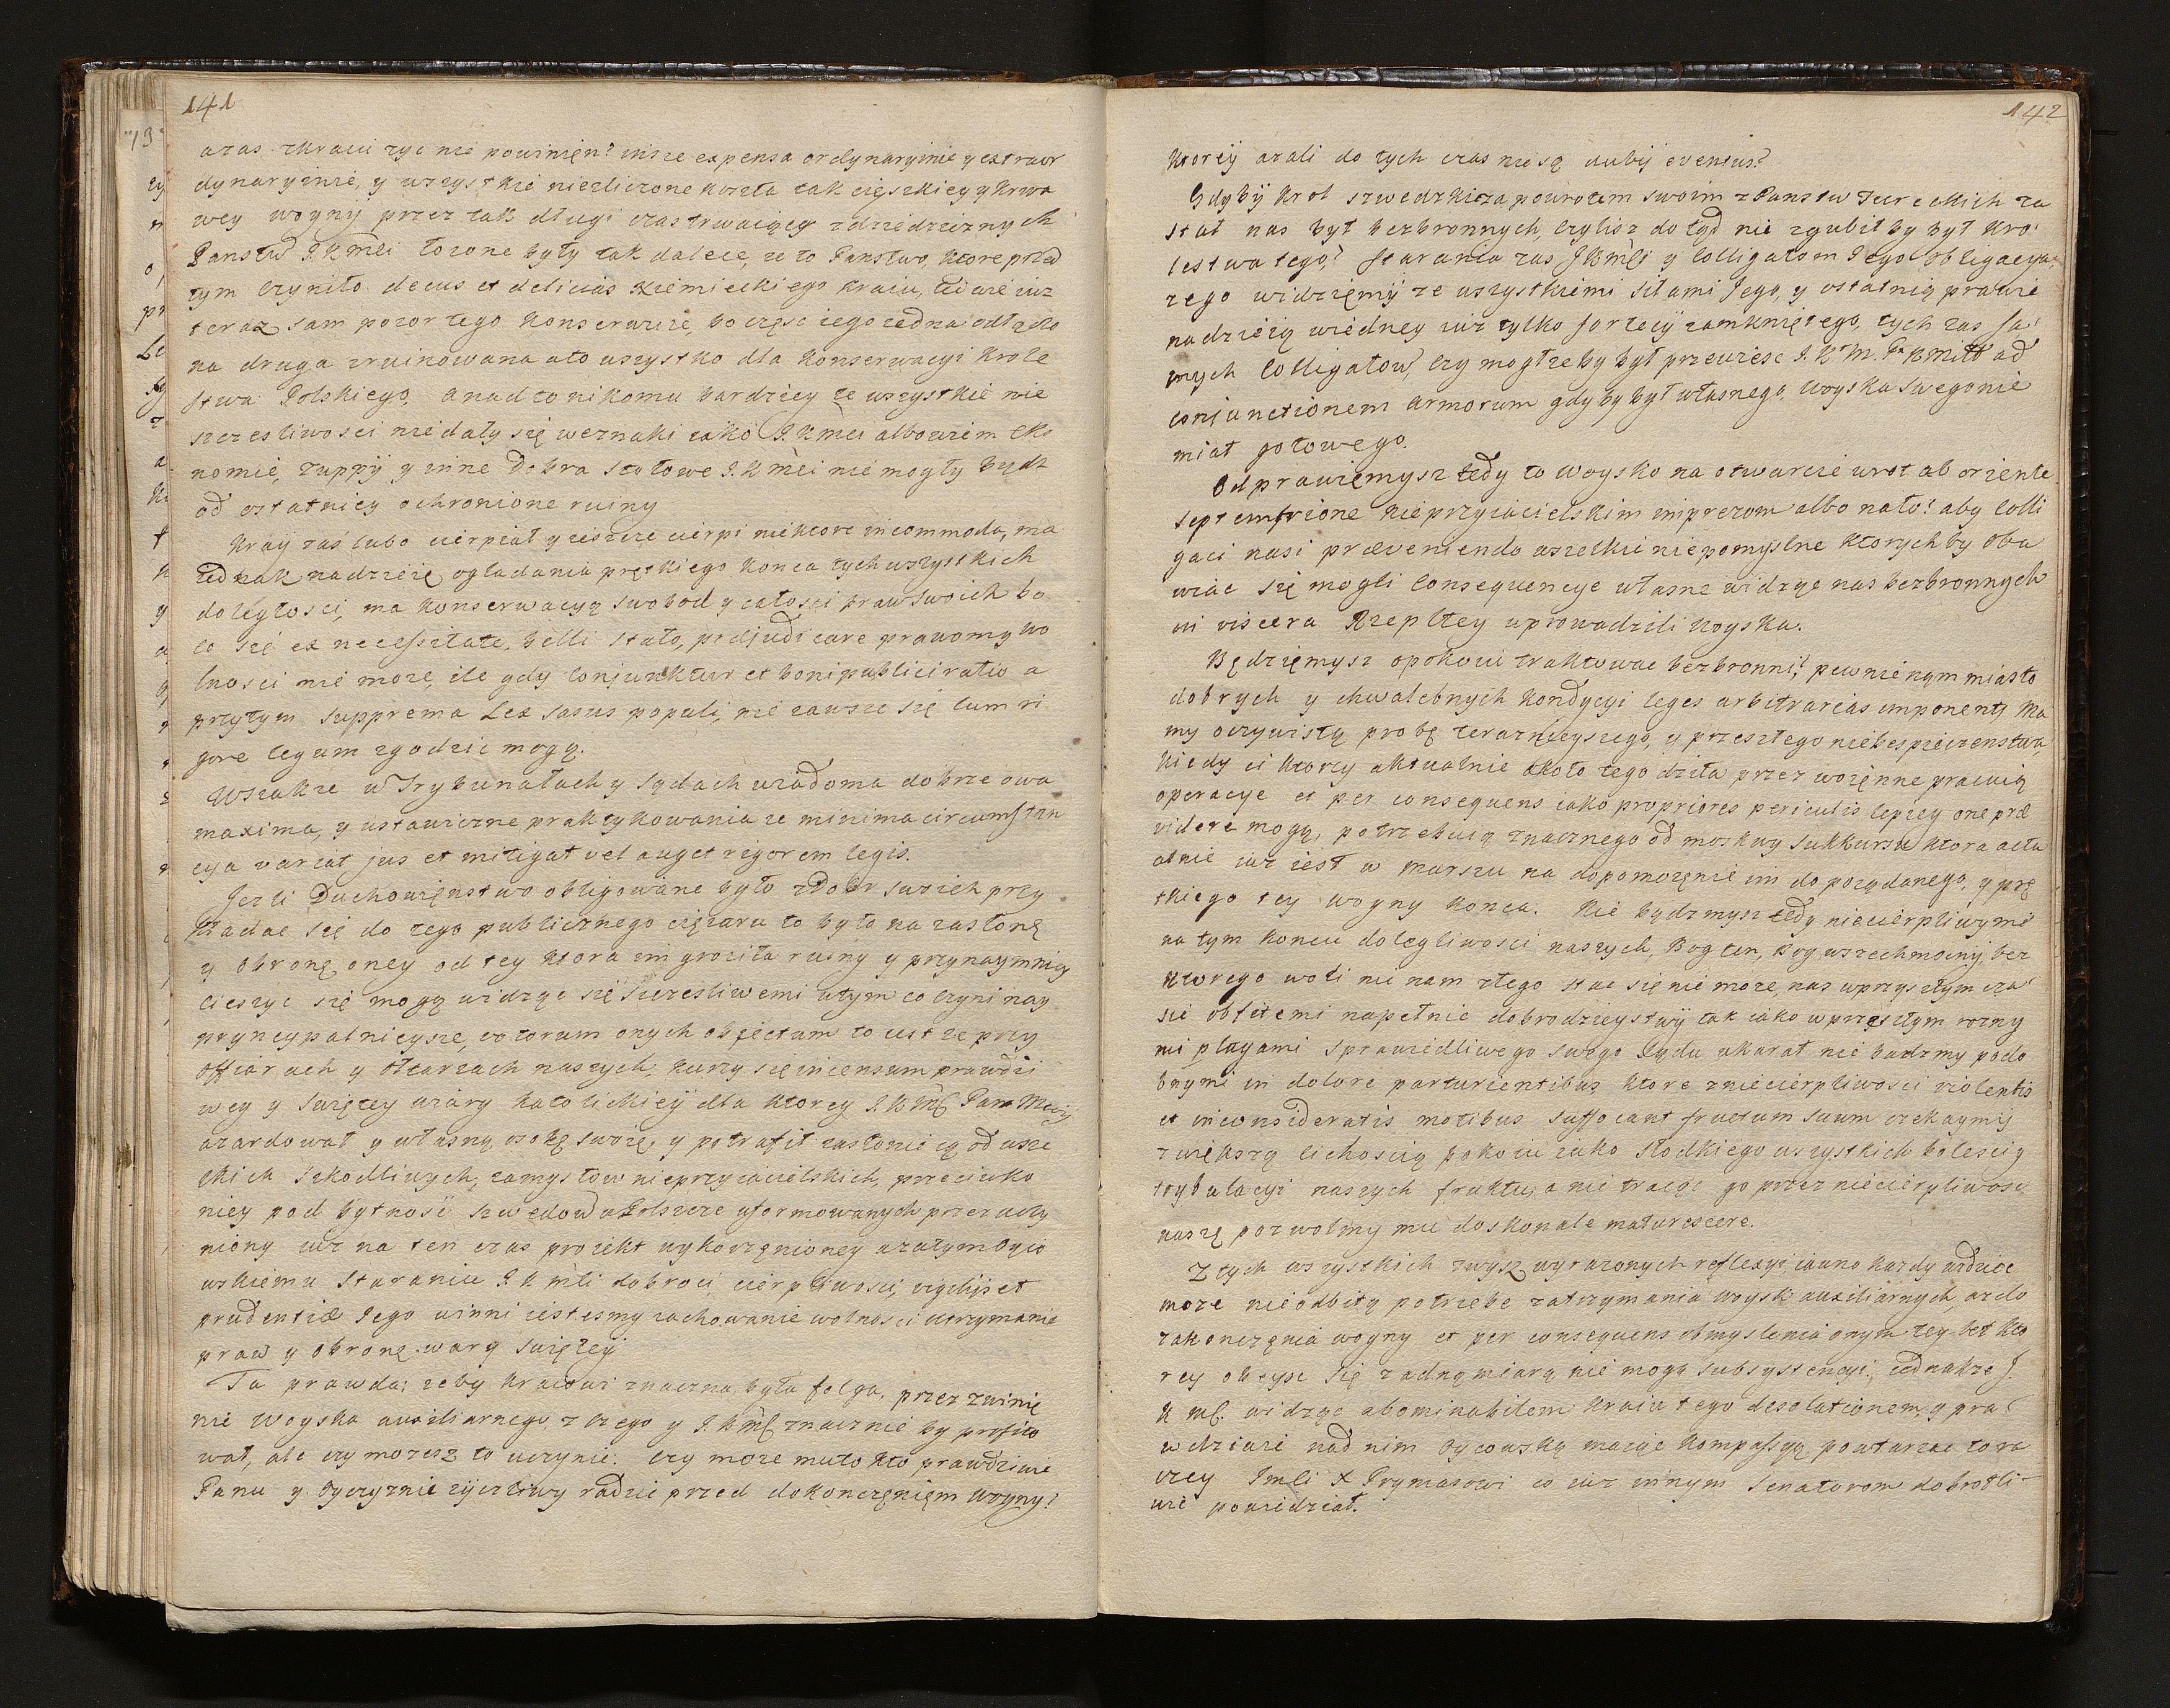 141
azas zkraiu zyc nie powinięn? insze expensa ordynaryinie y extraor
dynaryinie, y wszystkie niezliczone koszta tak cięszkiey y krwa
wey woyny przez tak długi czas trwaiącey z dziedzicznych
Panstw J. K mći łozone były tak dalece, ze to Panstwo, ktore przed
tym czyniło decus et delicias Niemieckiego kraiu, ledwie iuz
teraz sam pozor tego konserwuie, bo częsc iego iedna odłączo
na druga zruinowana a to wszystko dla konserwacyi Krole
stwa Polskiego, a nad to nikomu bardziey te wszystkie nie
szczesliwosci nie dały się weznaki iako J. K mći albowiem Eko
nomie, zuppÿ y inne Dobra stołowe J. K mći nie mogły bydz
od ostatniey ochronione ruiny
Kraÿ zaś lubo cierpiał y ieszcze cierpi niektore incommoda, ma
iednak nadzieię oglądania prętkiego konca tych wszystkich
dolęgłosci, ma konserwacyą swobod y całosci praw swoich bo
co się ex necessitate belli stało, præjudicare prawom y wo
lnosci nie moze, ile gdy conjunktur et boni publici ratio a
przytym supprema Lex salus populi, nie zawsze się cum ri
gore legum zgodzic mogą.
Wszakze w Trybunałach y Sądach wiadoma dobrze owa
maxima, y ustawiczne praktykowania ze minima circumstan
cya variat jus et mitigat vel auget rigorem legis.
Jezli Duchowięnstwo obligowane było z Dobr swoich przy
kładac się do tego publicznego cięzaru to było na zasłonę
y obronę oney od tey ktora im groziła ruiny y przynaymniey
cieszyc się mogą widząc się szczesliwemi w tym co czyni nay
pryncypalnieysze, votorum onych objectum to iest ze przy
offiarach y Ołtarzach naszych, kurzy się incensum prawdzi
wey y swiętey wiary katolickieÿ dla ktorey J. K Mć Pan Moy
azardował y własną osobę swoię, y potrafił zasłonic ią od wsze
lkich szkodliwych, zamysłow nieprzyiacielskich, przeciwko
niey pod bytnosć Szwedow w Polszcze uformowanych przez uczy
niony iuz na ten czas proiekt wykorzęnioney a zatym Oyco
wskiemu staraniu J. K mći dobroci, cierpliwosci, vigilijs et
prudentiæ Jego winni iestesmy zachowanie wolnosci utrzymanie
praw y obronę wiary swiętey
Ta prawda; zeby kraiowi znaczna była folga, przez zwinię
nie Woyska auxiliarnego z czego y J. K Mć znacznie by profito
wał, ale czy mozesz to uczynic. Czy moze mu to kto prawdziwie
Panu y Oyczyznie zyczliwy radzic przed dokonczęnięm woyny?
142
ktoreÿ azali do tych czas nie są dubij eventus?
Gdybÿ Krol Szwedzki za powrotem swoim z Panstw Tureckich za
stał nas był bezbronnych, czylisz dotąd nie zgubił by był Kro
lestwa tego? Starania zas J K mći y Colligatom Jego obligacya,
zego widzięmÿ ze wszystkiemi siłami Jego, y ostatnią prawie
nadzieią w iedney iuz tylko forteçÿ zamknętego, tych zas sa
mych Colligatow, czy mogł ze by był przewiesc J. K M. P. K Miłć ad
conjunctionem armorum gdy by był własnego, Woyska swego nie
miał gotowego.
Odprawięmysz tedy to Woysko na otwarcie wrot ab oriente
septemtrione nieprzyiacielskim imprezom albo na to? aby Colli
gaci nasi præveniendo wszelkie niepomyslne ktorych by oba
wiac się mogli consequencye własne widząc nas bezbronnych
in viscera Rzepltey wprowadzili Woyska.
Będzięmysz o pokoiu traktowac bezbronni? pewnie nąm miasto
dobrych y chwalebnych kondycyi leges arbitrarias imponent; Ma
my oczywistą probę teraznieyszego, y przeszłego niebespieczenstwa
kiedy ci ktorzy aktualnie około tego dziła przez woięnne pracuią
operacye et per consequens iako propriores periculis lepiey one præ
videre mogą, potrzebuią znacznego od moskwy sukkursu ktora aktu
alnie iuz iest w marszu na dopomozęnie im do poządanego, y prę
tkiego tey woyny konca. Nie bądzmysz tedy niecierpliwymi
na tym koncu dolegliwosci naszych, Bog ten, Bog wszechmocny, bez
ktorego woli nic nam złego stac się nie moze, nas w przyszłym cza
sie obfitemi napełnic dobrodzieystwÿ tak iako w przeszłym rozny
mi plagami sprawiedliwego swego sądu ukarał nie bądzmy podo
bnymi in dolore parturientibus, ktore z niecierpliwosci violentis
et inconsideratis motibus suffocant fructum suum czekaymÿ
z większą cichoscią pokoiu iako słodkiego wszystkich bolesci y
trybulacyi naszych fruktu, a nie tracąc go przez niecierpliwosc
naszę pozwolmy mu doskonale maturescere.
Z tych wszystkich zwysz wyrazonych reflexyi iawno kazdy widziec
moze nieodbitą potrzebe zatrzymania woysk auxiliarnych az do
zakonczęnia woyny et per consequens obmyslenia onym tey bez kto
rey obeysc się zadną miarą nie mogą subsystencyi; iednakze J.
K mć. widząc abominabilem kraiu tego desolationem, y pra
wdziwie nad nim oycowską maiąc kompassyą, powtarzac to ra
czey Jmći X Prymasowi co iuz innym Senatorom dobrotli-
wie powiedział.